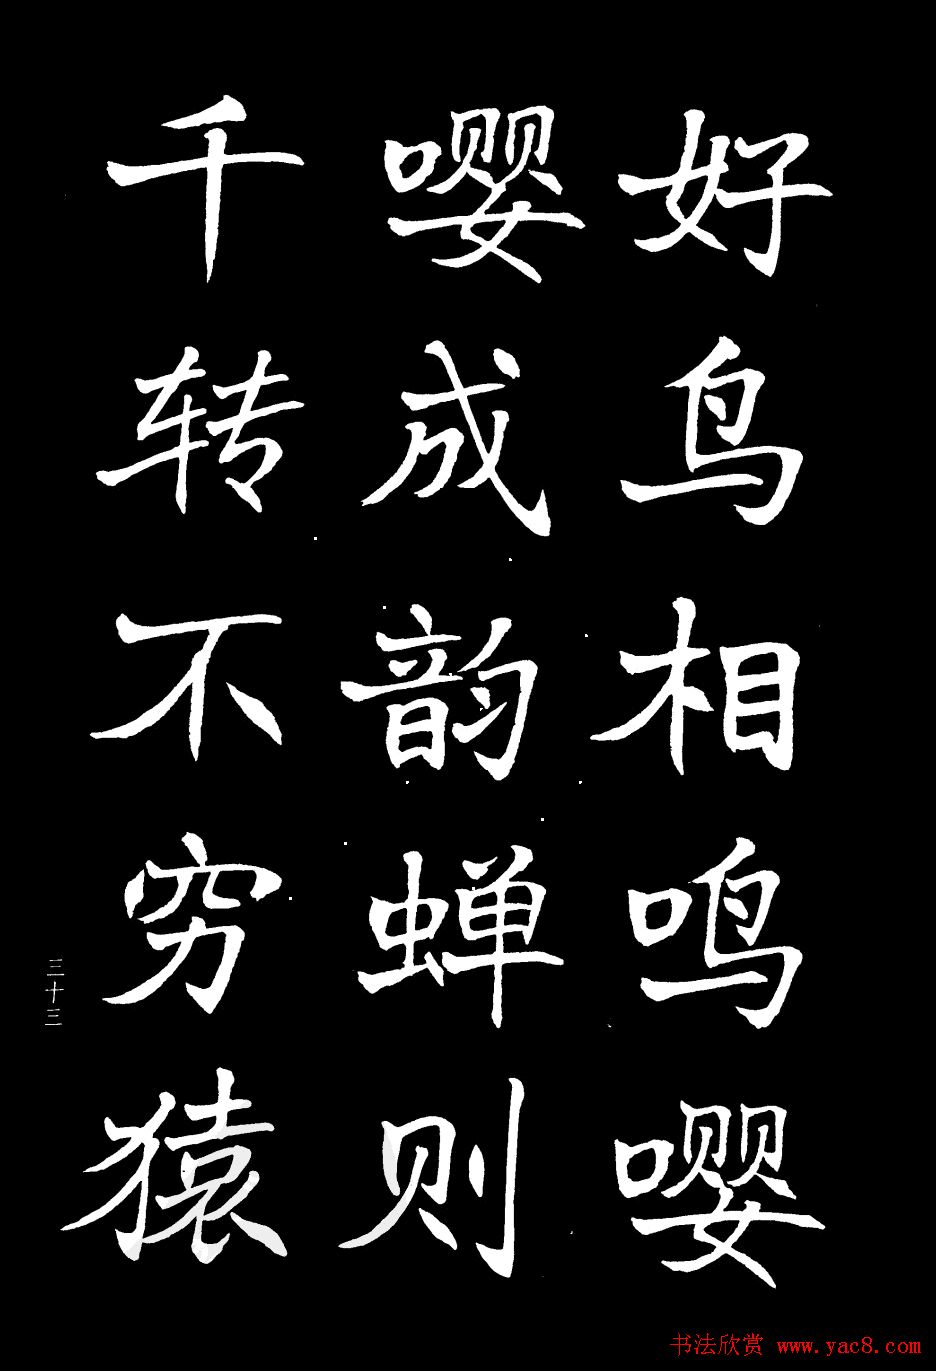 好鸟相鸣嘤
嘤成韵蝉则
千转不穷猿
三十三
书法欣赏 www.yac8.com